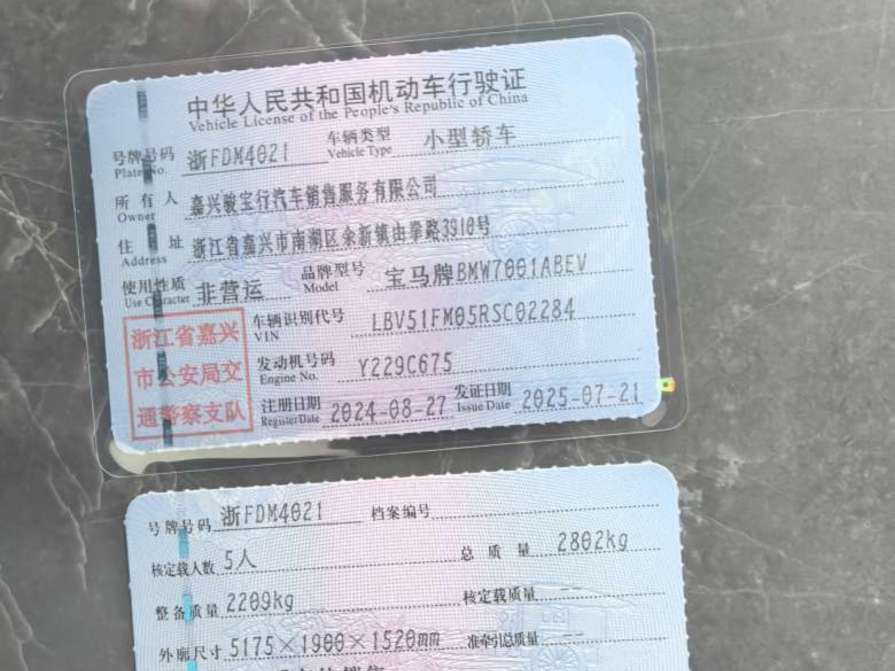 中华人民共和国机动车行驶证
Vehicle License of the People's Republic of China
号牌号码 浙FDM4021 车辆类型 小型轿车
Plate No. Vehicle Type
所有人 嘉兴骏宝行汽车销售服务有限公司
Owner
住址 浙江省嘉兴市南湖区余新镇由拳路3910号
Address
使用性质 非营运 品牌型号 宝马牌BMW7001ABEV
Use Character Model
浙江省嘉兴
市公安局交
通警察支队
车辆识别代号 LBV51FM05RSC02284
VIN
发动机号码 Y229C675
Engine No.
注册日期 2024-08-27 发证日期 2025-07-21
Register Date Issue Date
号牌号码 浙FDM4021 档案编号
核定载人数 5人 总质量 2802kg
整备质量 2209kg 核定载质量 --
外廓尺寸 5175×1900×1520mm 准牵引总质量 --